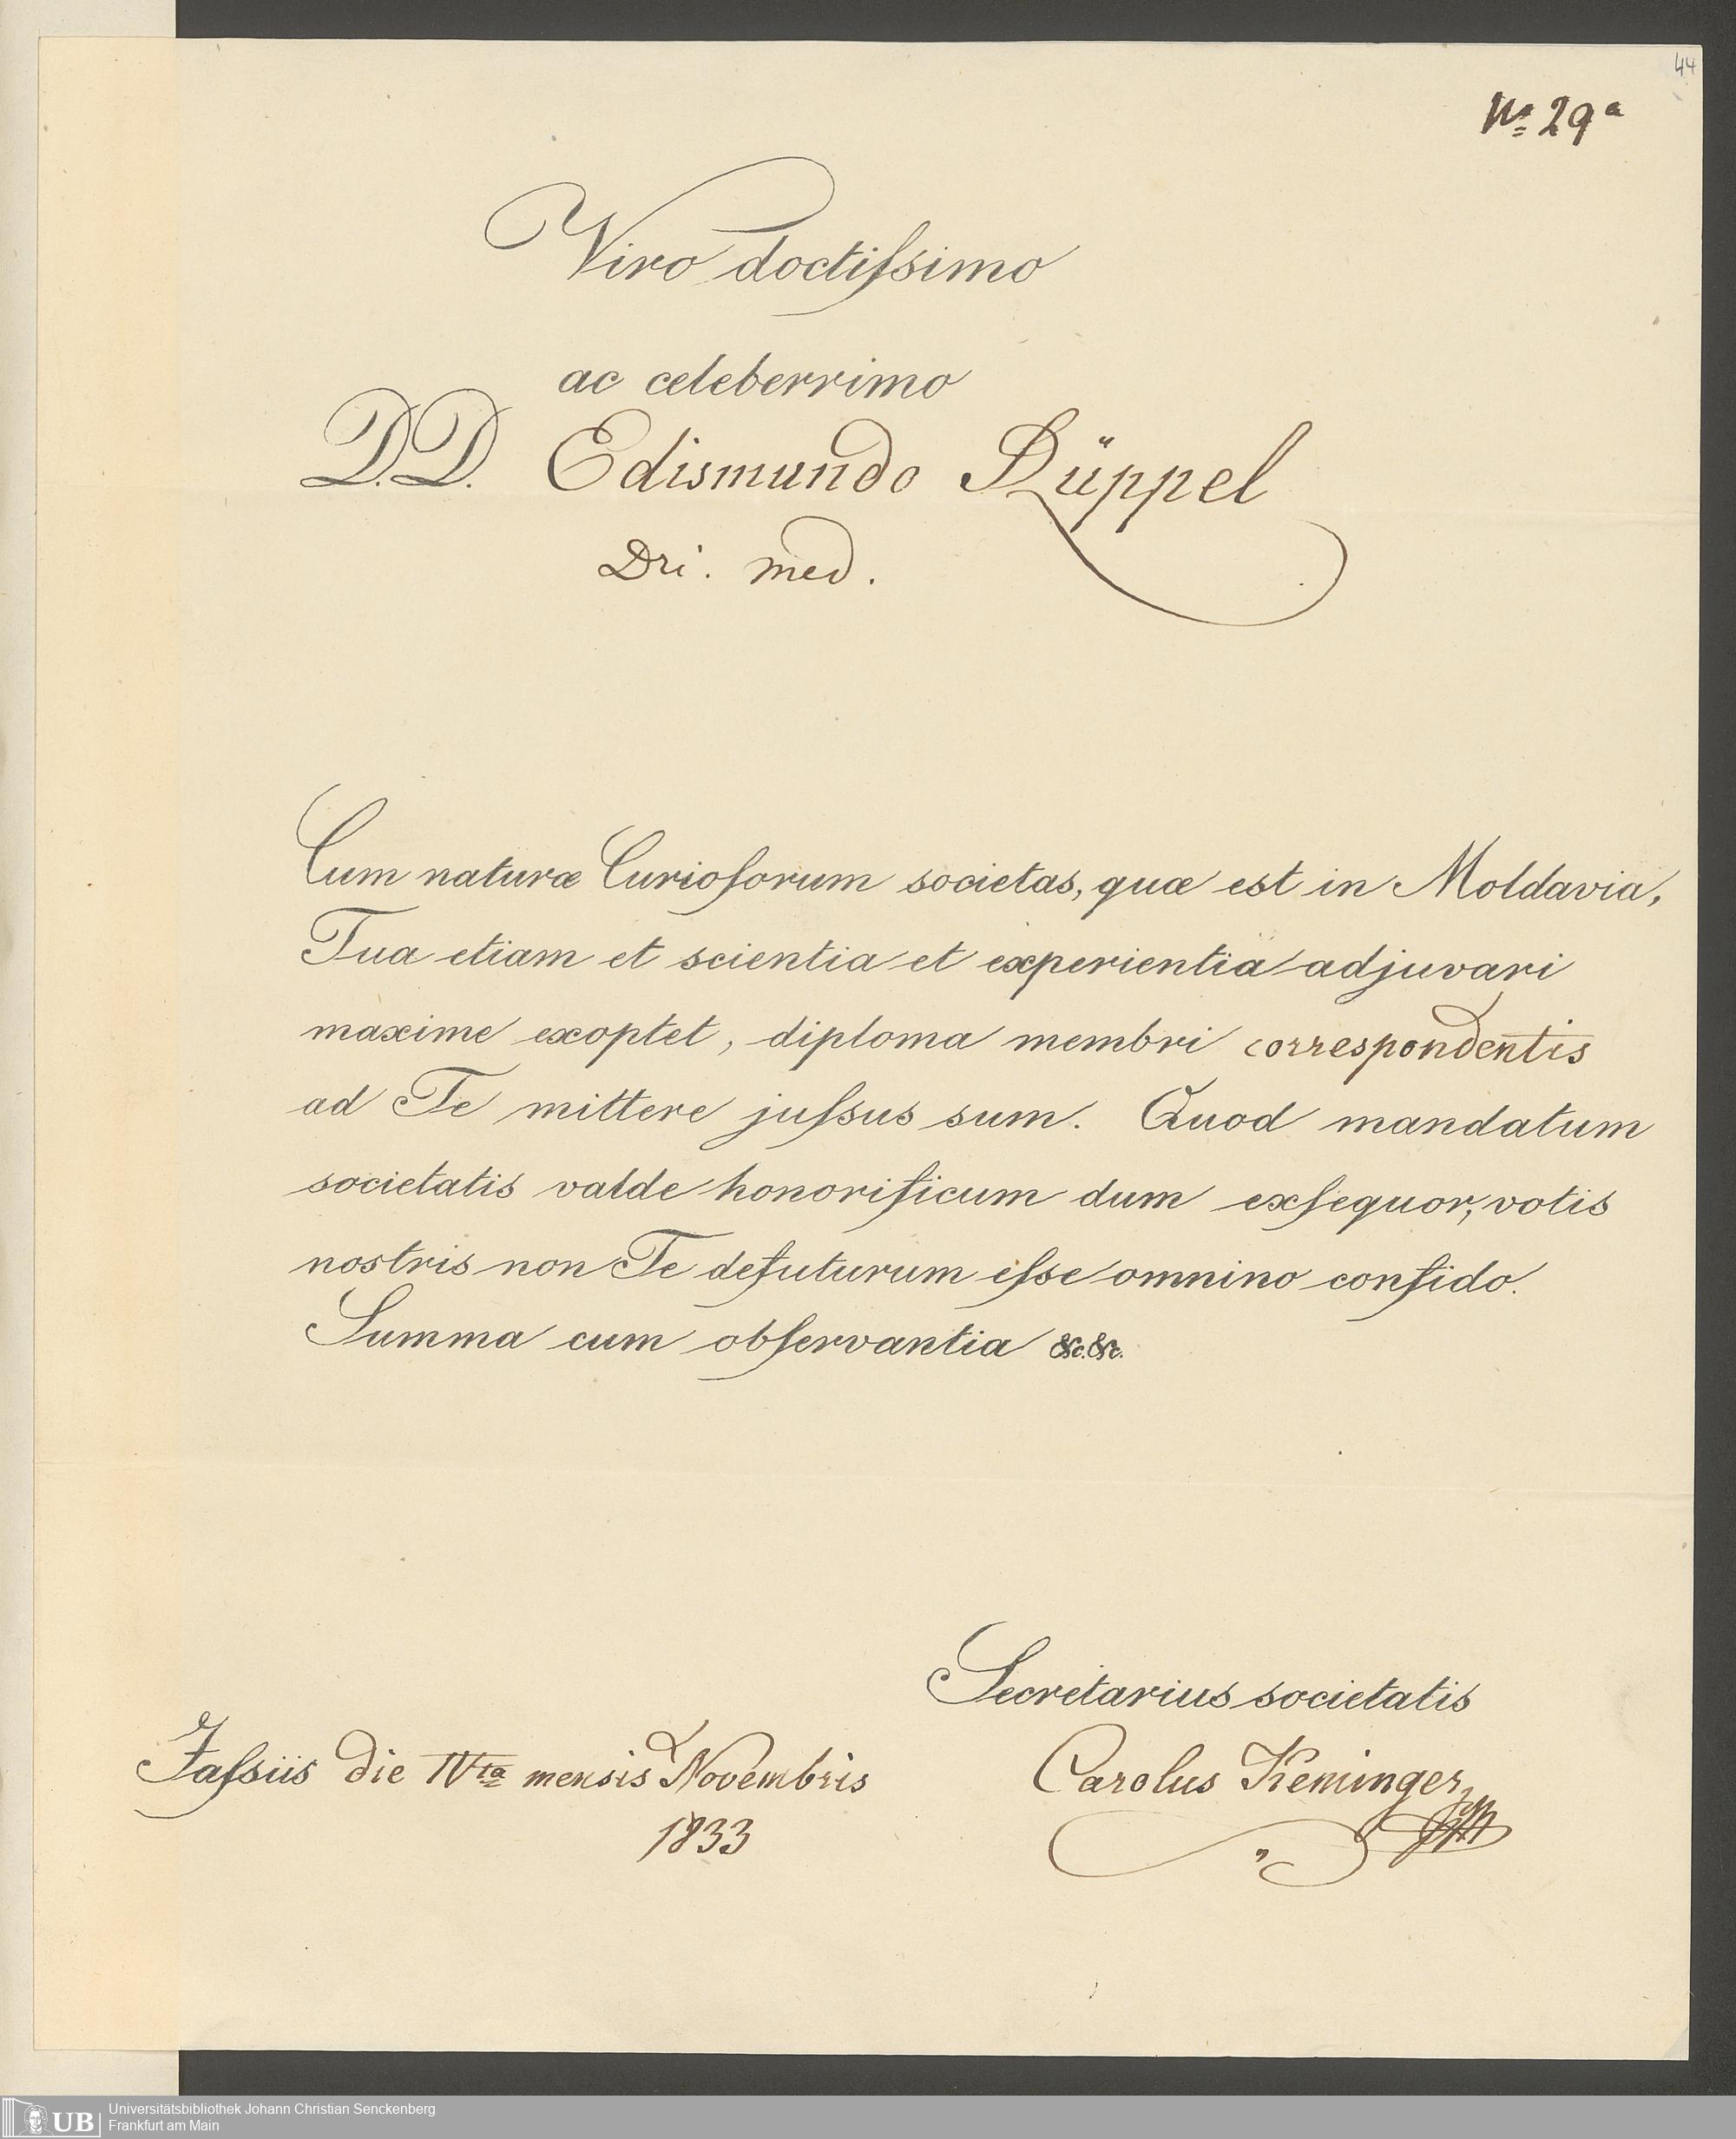 44
No 29a
Viro doctiſsimo
ac celeberrimo
D.D. Edismundo Rüppel
Dri. med.
Cum naturæ Curioſorum societas, quæ est in Moldavia,
Tua etiam et scientia et experientia adjuvari
maxime exoptet, diploma membri correspondentis
ad Te mittere juſsus sum. Quod mandatum
societatis valde honorificum dum exſequor, votis
nostris non Te defuturum eſse omnino confido.
Summa cum obſervantia &c.&c.
Secretarius societatis
Jaſsiis die IVta mensis Novembris
Carolus Keminger
1833
UB Universitätsbibliothek Johann Christian Senckenberg
Frankfurt am Main